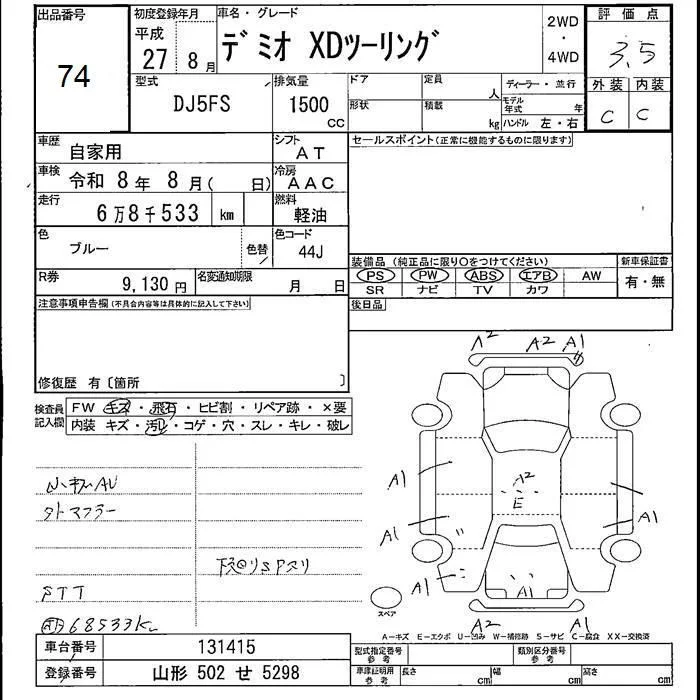 出品番号
74
初度登録年月
平成
27 8月
車名・グレード
デミオ XDツーリング
2WD
・
4WD
評価点
3.5
外装 内装
C C
型式
DJ5FS
排気量
1500
CC
ドア
定員
人
形状
積載
kg
ディーラー・並行
モデル年式
年
ハンドル 左・右
車歴
自家用
シフト
AT
車検
令和 8年 8月( 日)
冷房
AAC
走行
6万8千533 km
燃料
軽油
色
ブルー
色替
色コード
44J
R券
9,130円
名変通知期限
月 日
セールスポイント(正常に機能するものに限ります)
装備品 (純正品に限り○をつけてください)
PS PW ABS エアB AW
SR ナビ TV カワ
新車保証書
有・無
後日品
注意事項申告欄(不具合内容等は具体的に記入して下さい)
修復歴 有〔箇所 〕
検査員記入欄
FW キズ・飛石・ヒビ割・リペア跡・×要
内装 キズ・汚れ・コゲ・穴・スレ・キレ・破レ
外マフラー
下廻りSPスリ
68533K
A2 A2 A1
A1
A2
E
A1
A1
A1
A1
A2 A1
スペア
A-キズ E-エクボ U-凹み W-補修跡 S-サビ C-腐食 XX-交換済
車台番号
131415
登録番号
山形 502 せ 5298
型式指定番号
参考
類別区分番号
参考
車庫証明用
参考
長さ cm
幅 cm
高さ cm